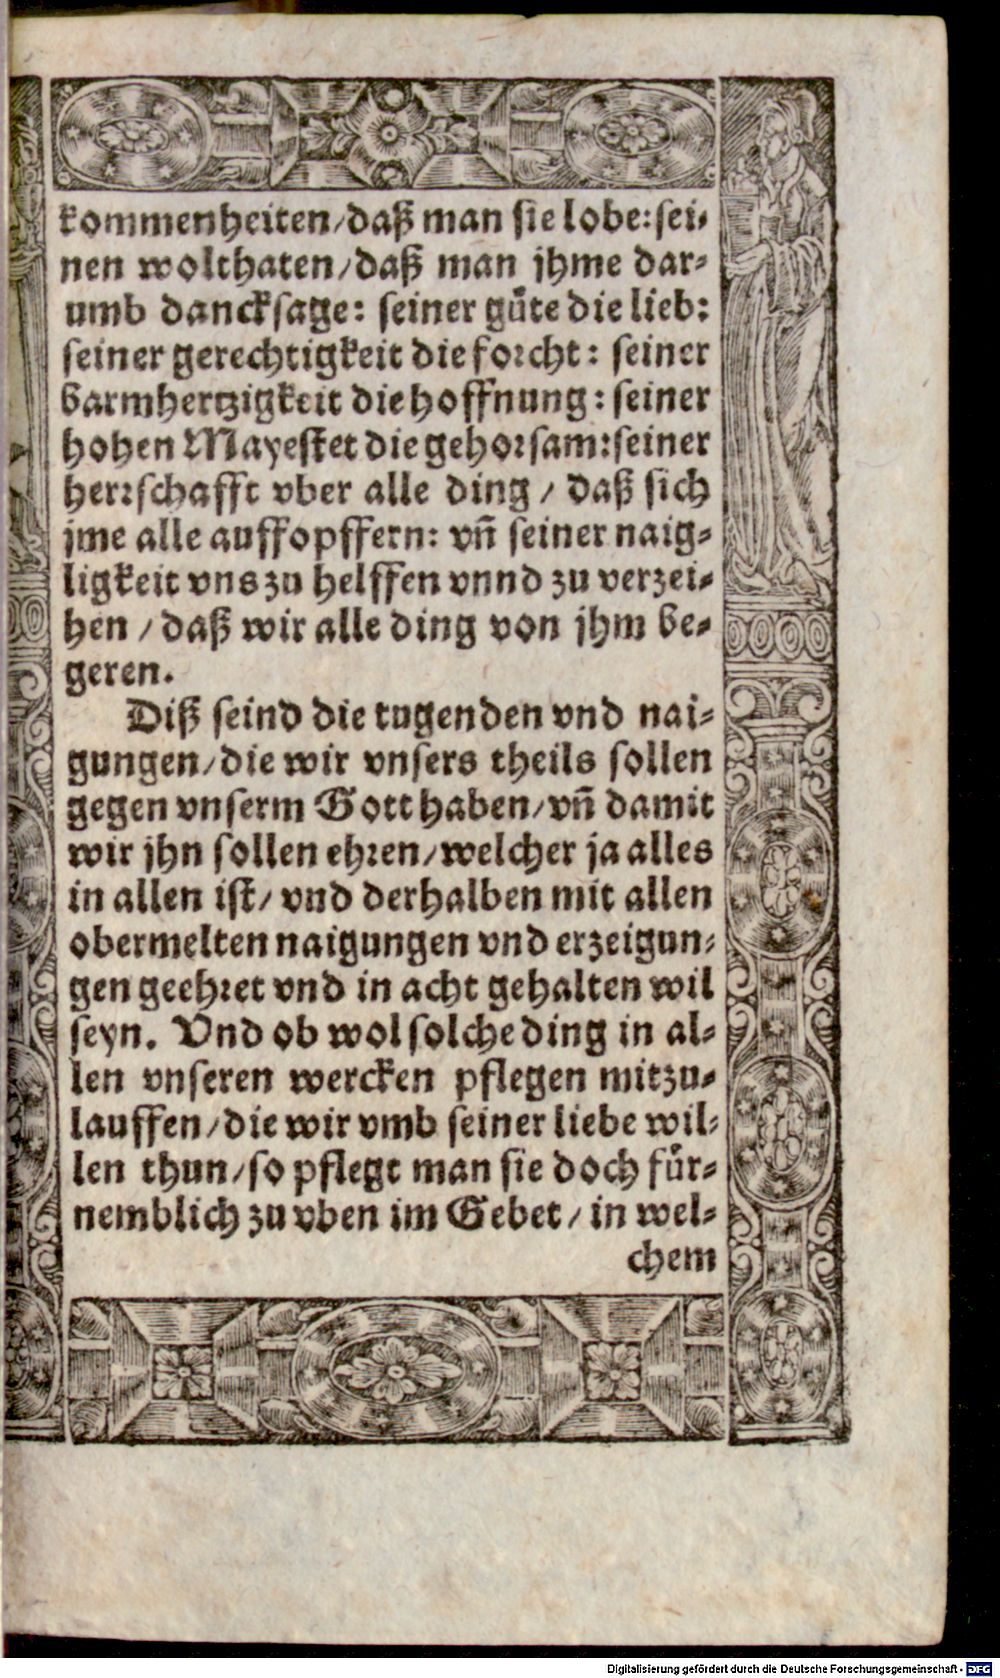 kommenheiten/daß man sie lobe:sei-
nen wolthaten/daß man jhme dar-
umb dancksage: seiner guͤte die lieb:
seiner gerechtigkeit die forcht: seiner
barmhertzigkeit die hoffnung: seiner
hohen Mayestet die gehorsam: seiner
herrschafft vber alle ding / daß sich
jme alle auffopffern: vñ seiner naig-
ligkeit vns zu helffen vnnd zu verzei-
hen / daß wir alle ding von jhm be-
geren.
Diß seind die tugenden vnd nai-
gungen/die wir vnsers theils sollen
gegen vnserm Gott haben/vñ damit
wir jhn sollen ehren/welcher ja alles
in allen ist/ vnd derhalben mit allen
obermelten naigungen vnd erzeigun-
gen geehret vnd in acht gehalten wil
seyn. Vnd ob wol solche ding in al-
len vnseren wercken pflegen mitzu-
lauffen/die wir vmb seiner liebe wil-
len thun/so pflegt man sie doch fuͤr-
nemblich zu vben im Gebet/ in wel-
chem
Digitalisierung gefördert durch die Deutsche Forschungsgemeinschaft - DFG